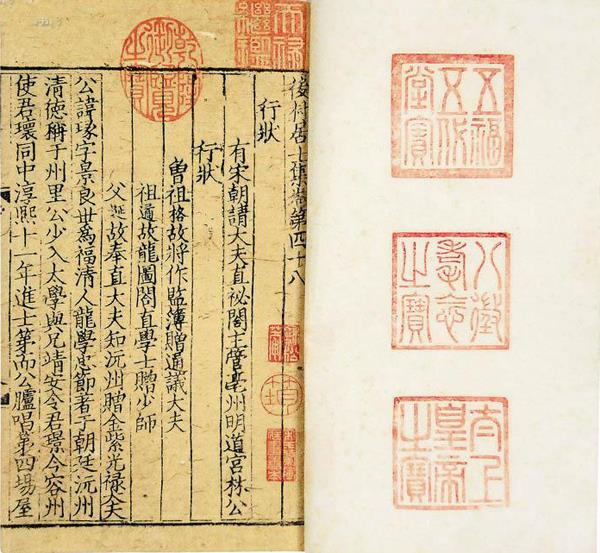 五福五代堂寶
八徵耄念之寶
太上皇帝之寶
天祿繼鑑
乾隆御覽之寶
後村居士集卷第四十八
行狀
有宋朝請大夫直祕閣主管亳州明道宮林公
行狀
曾祖格故將作監簿贈通議大夫
祖遹故龍圖閣直學士贈少師
父埏故奉直大夫知沅州贈金紫光祿大夫
公諱瑑字景良世為福清人龍學忠節著于朝廷沅州
清德稱于州里公少入太學與兄靖安令君璟今容州
使君環同中淳熙十一年進士第而公臚唱第四場屋